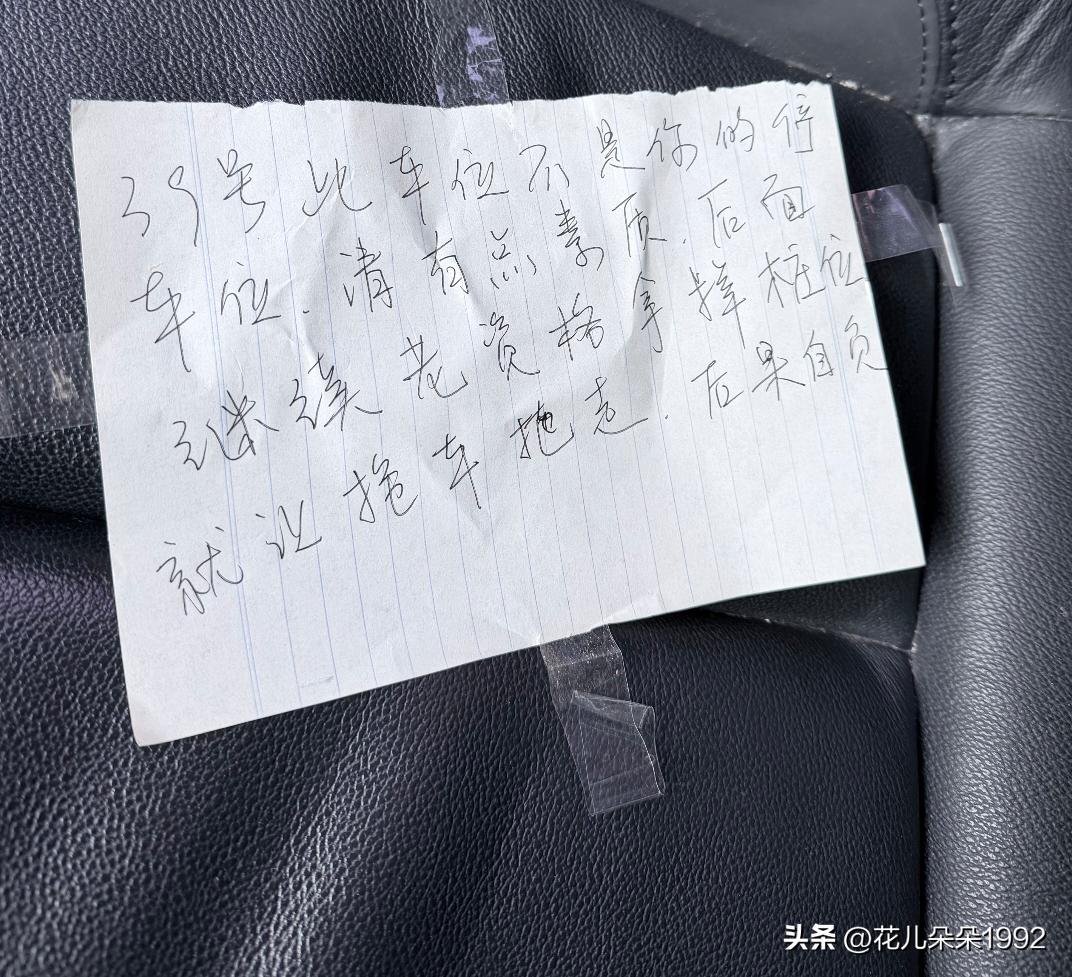 39号 此车位不是你的停
车位.请有点素质.后面
继续老资格拿掉桩位
就让拖车拖走.后果自负
头条 @花儿朵朵1992